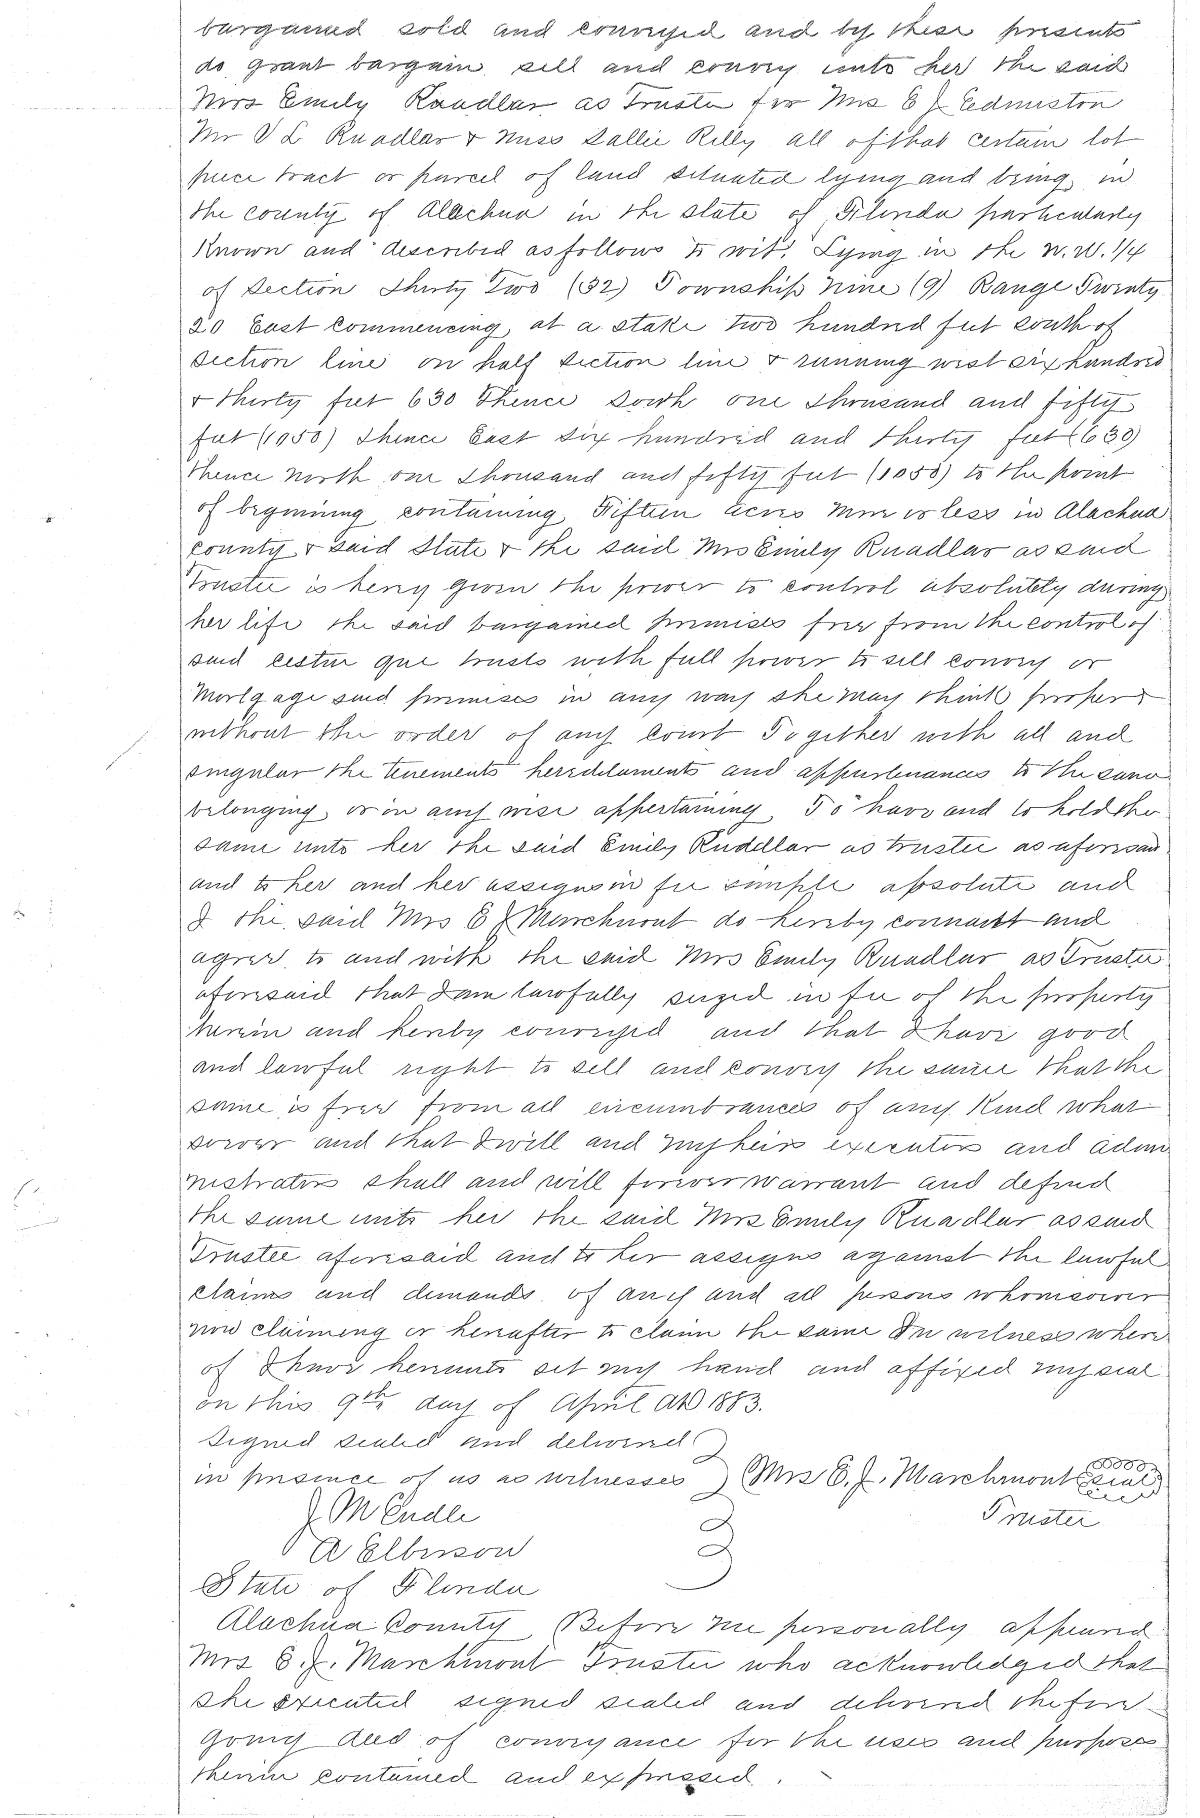 bargained sold and conveyed and by these presents
do grant bargain sell and convey unto her the said
Mrs Emily Ruadlar as Trustee for Mrs E J Edmiston
Mr V L Ruadlar & Miss Sallie Rilly all of that certain lot
piece tract or parcel of land situated lying and being in
the county of Alachua in the state of Florida particularly
Known and described as follows to wit. Lying in the N.W. 1/4
of Section Thirty Two (32) Township Nine (9) Range Twenty
20 East commencing at a stake two hundred feet south of
section line on half section line & running west six hundred
& thirty feet 630 Thence South one thousand and fifty
feet (1050) thence East six hundred and thirty feet (630)
thence North one thousand and fifty feet (1050) to the point
of beginning containing Fifteen acres more or less in Alachua
county & said State & the said Mrs Emily Ruadlar as said
Trustee is herey given the power to control absolutely during
her life the said bargained premises free from the control of
said cestui que trusts with full power to sell convey or
Mortgage said premises in any way she may think proper
without the order of any Court Together with all and
singular the tenements hereditaments and appurtenances to the same
belonging or in any wise appertaining To have and to hold the
same unto her the said Emily Rudellar as trustee as aforesaid
and to her and her assigns in fee simple absolute and
I the said Mrs E J Marchmont do hereby convenant and
agree to and with the said Mrs Emily Ruadlar as Trustee
aforesaid that I am lawfully seized in fee of the property
herein and hereby conveyed and that I have good
and lawful right to sell and convey the same that the
same is free from all encumbrances of any Kind what
soever and that I will and my heirs executors and admi
nistrators shall and will forever warrant and defend
the same unto her the said Mrs Emily Ruadlar as said
Trustee aforesaid and to her assigns against the lawful
claims and demands of any and all persons whomsoever
now claiming or hereafter to claim the same In witness where
of I have hereunto set my hand and affixed my seal
on this 9th day of April AD 1883.
Signed sealed and delivered
in presence of us as witnesses } Mrs E. J. Marchmont seal
J M Endle Trustee
A Elberson
State of Florida
Alachua County Before me personally appeared
Mrs E. J. Marchmont Trustee who acknowledged that
she executed signed sealed and delivered the fore
going deed of conveyance for the uses and purposes
therein contained and expressed.